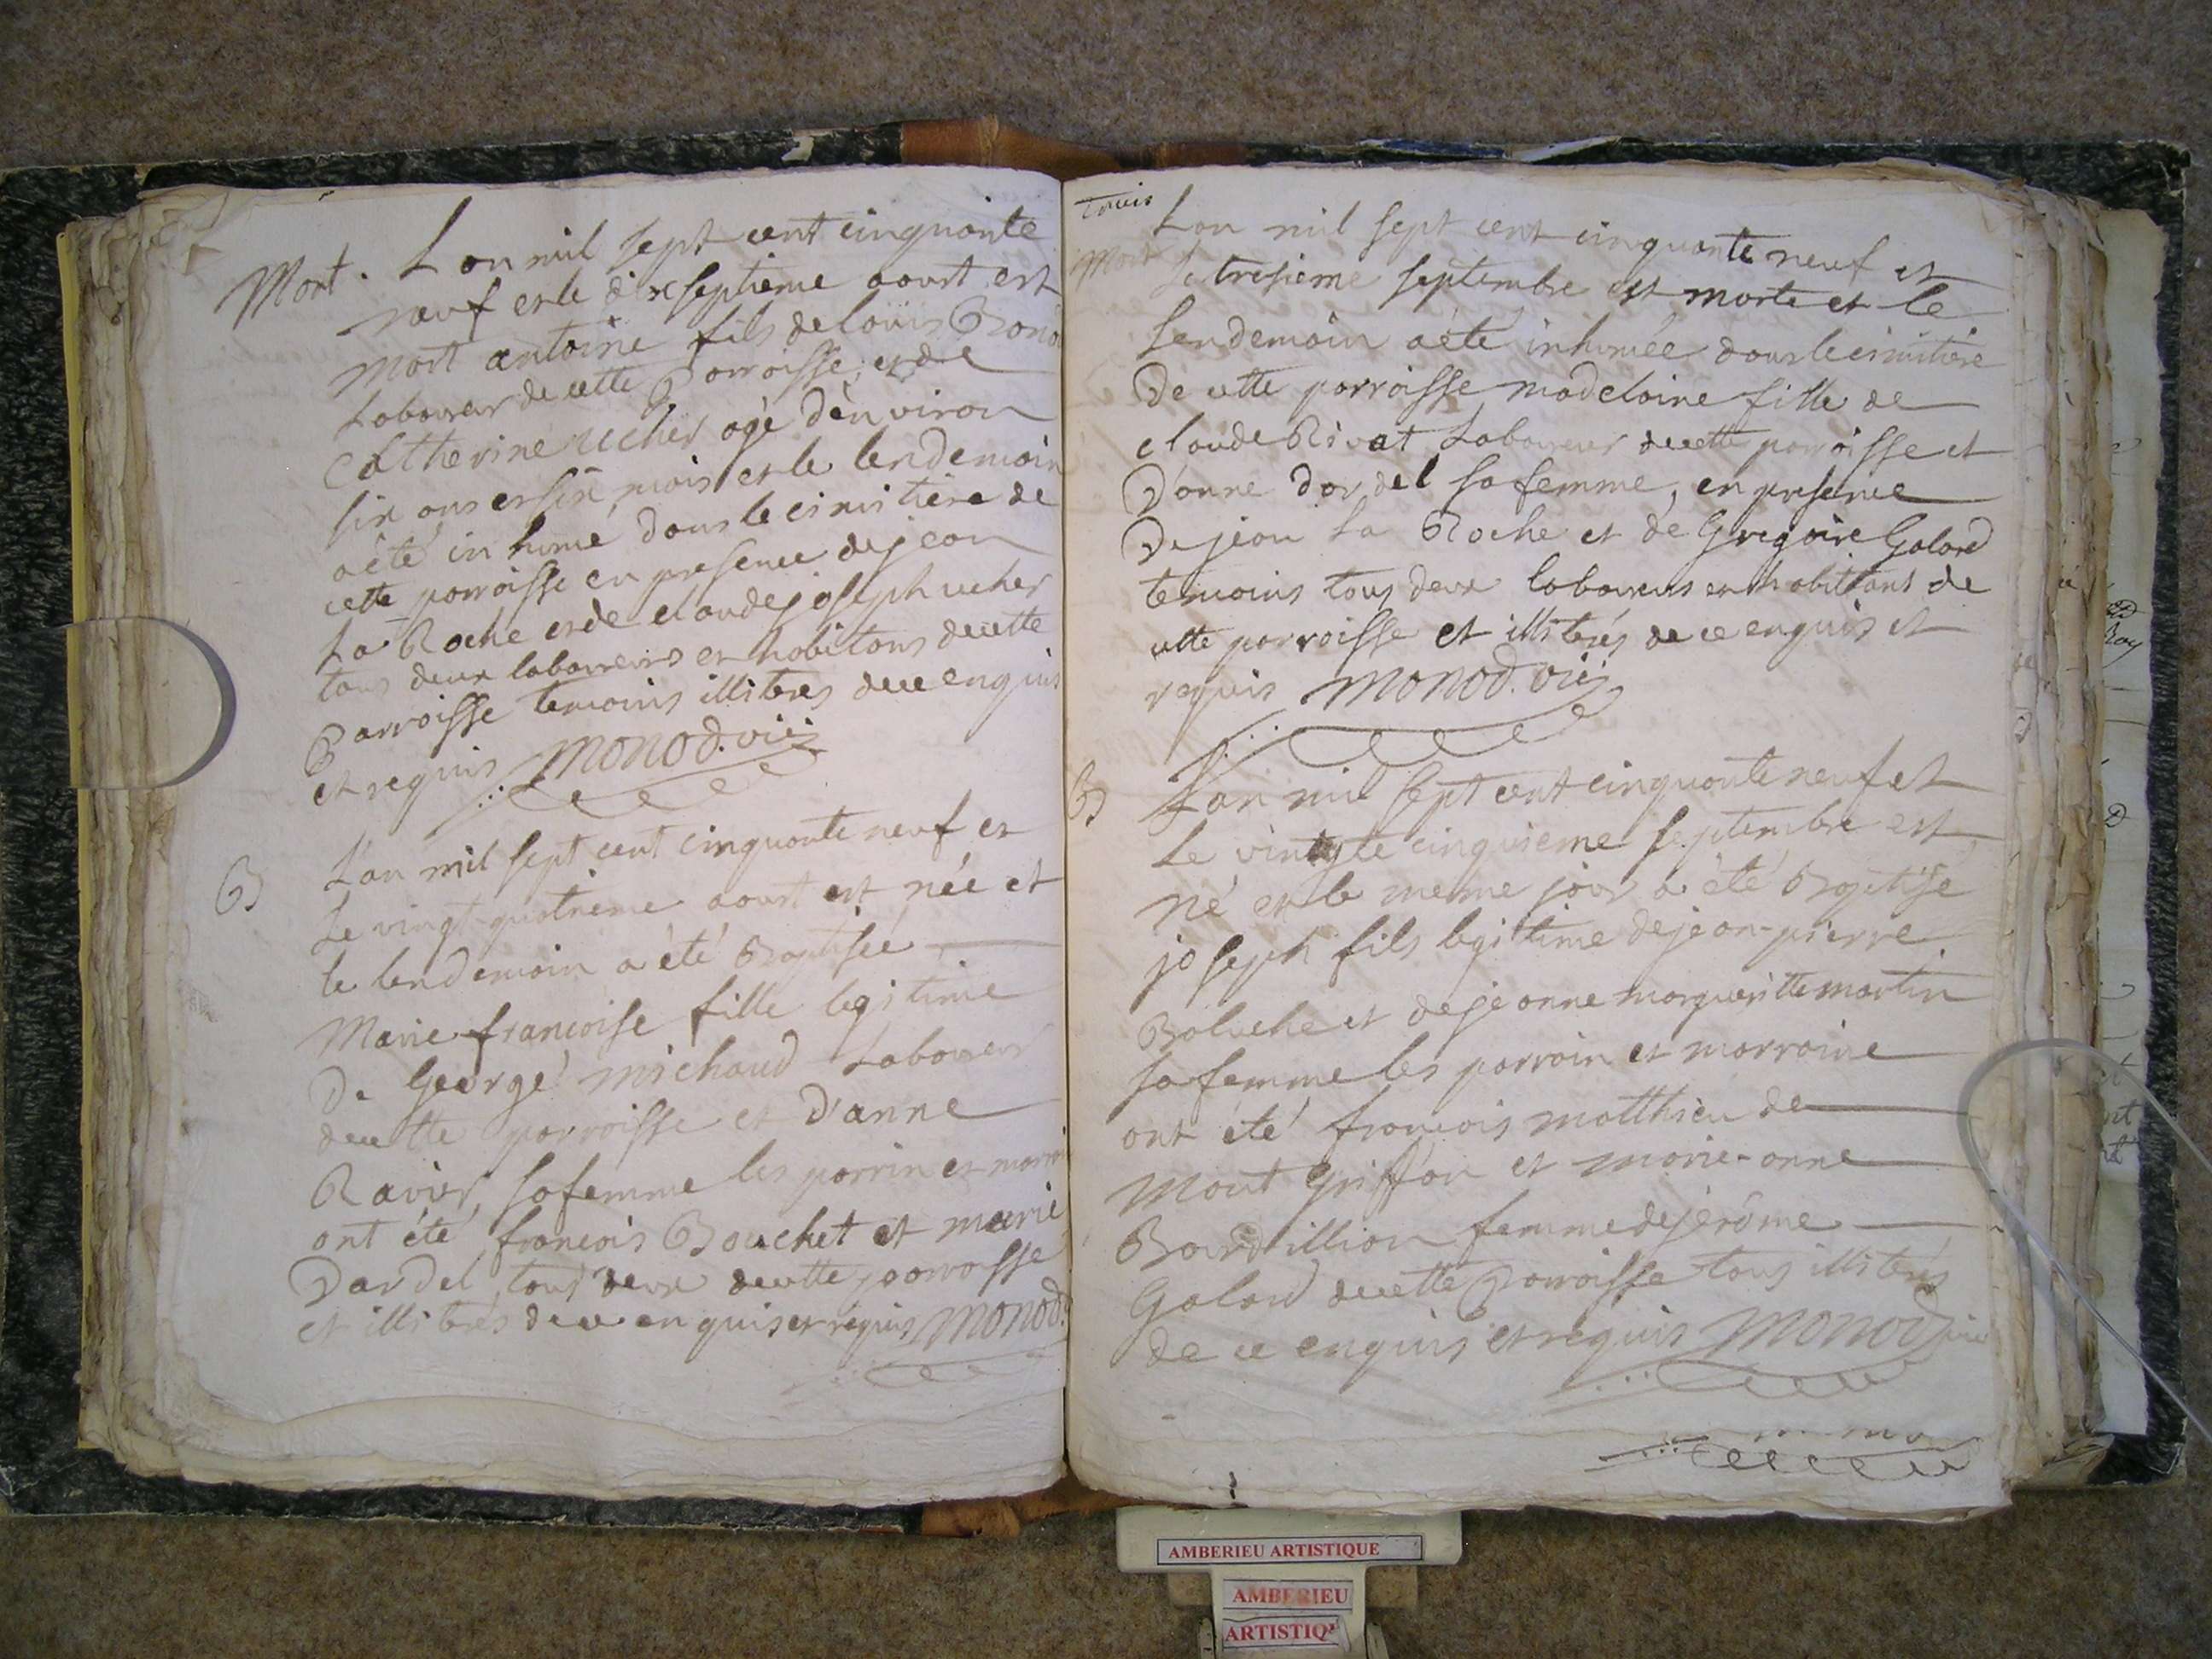 Mort. Lan mil sept cent cinquante
neuf et le dixseptieme aoust est
mort antoine fils de loüis
Laboureur de cette Parroisse, et de
Catherine ucher agé d'environ
six ans et six mois et le lendemain
a été inhumé dans le cimitiere de
cette parroisse en presence de jean
La Roche et de claude joseph ucher
tous deux laboureurs et habitans de cette
Parroisse temoins illiterés de ce enquis
et requis Monod. vic.
B L'an mil sept cent cinquante neuf et
Le vingt-quatrieme aoust est née et
le lendemain a été Baptisée
Marie francoise fille legitime
De George michaud Laboureur
de cette parroisse et d'anne
Ravier, sa femme les parrin et
ont été francois Bouchet et marie
Dardel, tous deux de cette parroisse
et illiterés de ce enquis et requis Monod.
Lan mil sept cent cinquante neuf et
Mort Le tresieme septembre est morte et le
Lendemain a été inhumée dans le cimitiere
De cette parroisse madelaine fille de
claude Rivat Laboureur de cette parroisse et
D'anne dardel sa femme, en presence
De jean La Roche et de Gregoire Galand
temoins tous deux laboureurs et habittans de
cette parroisse et illiterés de ce enquis et
requis Monod. vic.
B L'an mil sept cent cinquante neuf et
Le vingte cinquieme septembre est
né et le meme jour a été Baptisé
joseph fils legittime de jean-pierre
Boluche et de jeanne margueritte martin
sa femme les parrain et marraine
ont été francois matthieu de
Mont Griffon et marie-anne
Bourdillion femme de jerôme
Galand de cette Parroisse tous illiterés
de ce enquis et requis Monod vic
AMBERIEU ARTISTIQUE
AMBERIEU
ARTISTIQ